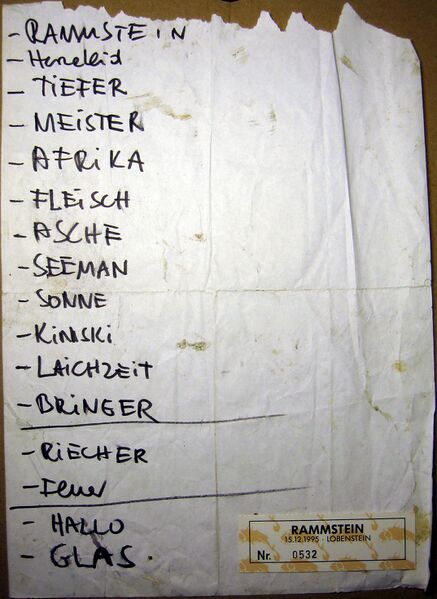 - RAMMSTEIN
- Herzeleid
- TIEFER
- MEISTER
- AFRIKA
- FLEISCH
- ASCHE
- SEEMAN
- SONNE
- KINSKI
- LAICHZEIT
- BRINGER
- RIECHER
- Feuer
- HALLO
- GLAS.
RAMMSTEIN
15.12.1995 - LOBENSTEIN
Nr. 0532